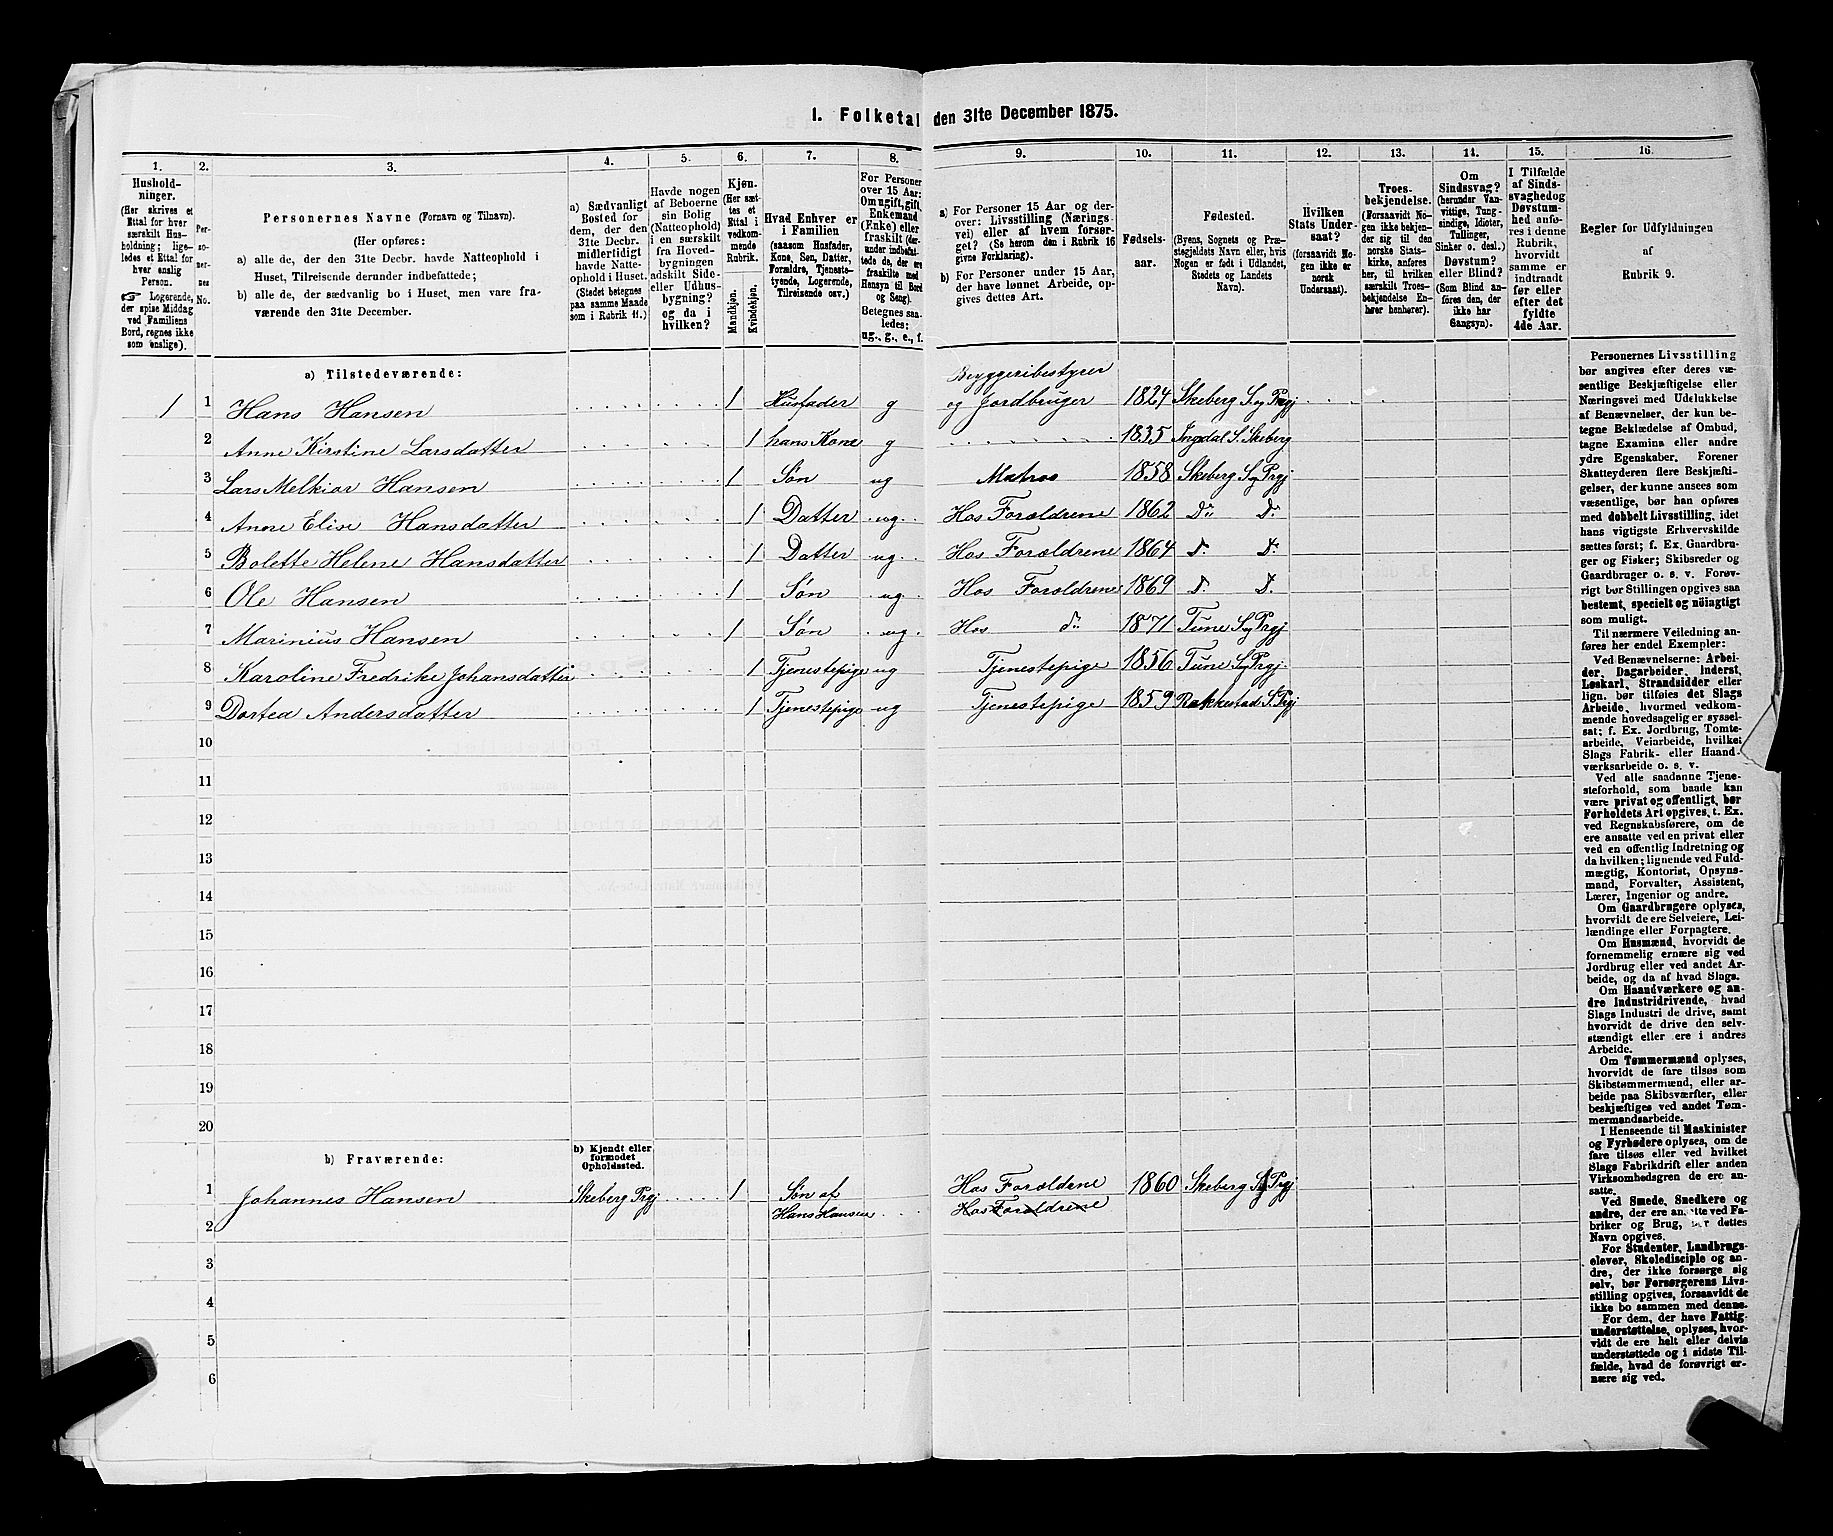 1. Folketal den 31te December 1875.
1. 2. 3. 4. 5. 6. 7. 8. 9. 10. 11. 12. 13. 14. 15. 16.
Hushold-
ninger.
(Her skrives et
Ettal for hver
særskilt Hus-
holdning; lige-
ledes et Ettal for
hver enslig
Person.
☞ Logerende,
der spise Middag
ved Familiens
Bord, regnes ikke
som enslige).
Per-
so-
ner-
nes
No.
Personernes Navne (Fornavn og Tilnavn).
(Her opføres:
a) alle de, der den 31te Decbr. havde Natteophold i
Huset, Tilreisende derunder indbefattede;
b) alle de, der sædvanlig bo i Huset, men vare fra-
værende den 31te December.
a) Sædvanligt
Bosted for
dem, der den
31te Decbr.
midlertidigt
havde Natte-
ophold i Huset.
(Stedet betegnes
paa samme Maade
som i Rubrik 11.)
Havde nogen
af Beboerne
sin Bolig
(Natteophold)
i en særskilt
fra Hoved-
bygningen
adskilt Side-
eller Udhus-
bygning?
og da i
hvilken?
Kjøn.
(Her sæt-
tes et
Ettal i
vedkom-
mende
Rubrik.
Mandkjøn.
Kvindekjøn.
Hvad Enhver er
i Familien
(saasom Husfader,
Kone, Søn, Datter,
Forældre, Tjeneste-
tyende, Logerende,
Tilreisende osv.)
For Personer
over 15 Aar:
Om ugift, gift,
Enkemand
(Enke) eller
fraskilt (der-
under indbefat-
tede de, der ere
fraskilte med
Hensyn til Bord
og Seng).
Betegnes saa-
ledes:
ug., g., e., f.
a) For Personer 15 Aar og der-
over: Livsstilling (Nærings-
vei) eller af hvem forsør-
get? (Se herom den i Rubrik 16
givne Forklaring).
b) For Personer under 15 Aar,
der have lønnet Arbeide, op-
gives dettes Art.
Fødsels-
aar.
Fødested.
(Byens, Sognets og Præ-
stegjeldets Navn eller, hvis
Nogen er født i Udlandet,
Stedets og Landets
Navn).
Hvilken
Stats Under-
saat?
(forsaavidt No-
gen ikke er
norsk
Undersaat).
Troes-
bekjendelse.
(Forsaavidt No-
gen ikke bekjen-
der sig til den
norske Stats-
kirke, anføres
her, til hvilken
særskilt Troes-
bekjendelse En-
hver henhører).
Om
Sindssvag?
(herunder Van-
vittige, Tung-
sindige, Idioter,
Tullinger,
Sinker o. desl.)
Døvstum?
eller Blind?
(Som Blind an-
føres den, der
ikke har
Gangsyn).
I Tilfælde
af Sinds-
svaghed og
Døvstum-
hed anfø-
res i denne
Rubrik,
hvorvidt
samme er
indtraadt
før eller
efter det
fyldte
4de Aar.
Regler for Udfyldningen
af
Rubrik 9.
a) Tilstedeværende:
Bryggeribestyrer
1 1 Hans Hansen 1 Husfader g og Jordbruger 1824 Skeberg S og Prgj
2 Anne Kirstine Larsdatter 1 hans Kone g 1835 Ingedal S. Skeberg
3 Lars Melkior Hansen 1 Søn ug Matros 1858 Skeberg S og Prgj
4 Anne Elise Hansdatter 1 Datter ug. Hos Forældrene 1862 Do Do
5 Bolette Helene Hansdatter 1 Datter ug. Hos Forældrene 1864 do Do
6 Ole Hansen 1 Søn ug. Hos Forældrene 1869 do Do
7 Marinius Hansen 1 Søn ug. Hos do 1871 Tune S og Prgj
8 Karoline Fredrike Johansdatter 1 Tjenestepige ug Tjenestepige 1856 Tune S og Prgj.
9 Dortea Andersdatter 1 Tjenestepige ug Tjenestepige 1859 Rakkestad S. Prgj
10
11
12
13
14
15
16
17
18
19
20
b) Fraværende:
b) Kjendt eller
formodet
Opholdssted.
1 Johannes Hansen Skeberg Prgj 1 Søn af Hos Forældrene 1860 Skeberg S og Prgj
2 Hans Hansen Hos Forældrene
3
4
5
6
Personernes Livsstilling
bør angives efter deres væ-
sentlige Beskjæftigelse eller
Næringsvei med Udelukkelse
af Benævnelser, der kun be-
tegne Beklædelse af Ombud,
tagne Examina eller andre
ydre Egenskaber. Forener
Skatteyderen flere Beskjæfti-
gelser, der kunne ansees som
væsentlige, bør han opføres
med dobbelt Livsstilling, idet
hans vigtigste Erhvervskilde
sættes først; f. Ex. Gaardbru-
ger og Fisker; Skibsreder og
Gaardbruger o. s. v. Forøv-
rigt bør Stillingen opgives saa
bestemt, specielt og nøiagtigt
som muligt.
Til nærmere Veiledning an-
føres her endel Exempler:
Ved Benævnelserne: Arbei-
der, Dagarbeider, Inderst,
Løskarl, Strandsidder eller
lign. bør tilføies det Slags
Arbeide, hvormed vedkom-
mende hovedsagelig er syssel-
sat; f. Ex. Jordbrug, Tomte-
arbeide, Veiarbeide, hvilket
Slags Fabrik- eller Haand-
værksarbeide o. s. v.
Ved alle saadanne Tjene-
steforhold, som baade kan
være privat og offentligt, bør
Forholdets Art opgives, t. Ex.
ved Regnskabsførere, om de
ere ansatte ved en privat eller
ved en offentlig Indretning og
da hvilken; lignende ved Fuld-
mægtig, Kontorist, Opsyns-
mand, Forvalter, Assistent,
Lærer, Ingeniør og andre.
Om Gaardbrugere oplyses,
hvorvidt de ere Selveiere, Lei-
lændinge eller Forpagtere.
Om Husmænd, hvorvidt de
fornemmelig ernære sig ved
Jordbrug eller ved andet Ar-
beide, og da af hvad Slags.
Om Haandværkere og an-
dre Industridrivende, hvad
Slags Industri de drive, samt
hvorvidt de drive den selv-
stændigt eller ere i andres
Arbeide.
Om Tømmermænd oplyses,
hvorvidt de fare tilsøs som
Skibstømmermænd, eller ar-
beide paa Skibsværfter, eller
beskjæftiges ved andet Tøm-
mermandsarbeide.
I Henseende til Maskinister
og Fyrbødere oplyses, om de
fare tilsøs eller ved hvilket
Slags Fabrikdrift eller anden
Virksomhedsgren de ere an-
satte.
Ved Smede, Snedkere og
andre, der ere ansatte ved Fa-
briker og Brug, bør dettes
Navn opgives.
For Studenter, Landbrugs-
elever, Skoledisciple og an-
dre, der ikke forsørge sig
selv, bør Forsørgerens Livs-
stilling opgives, forsaavidt de
ikke bo sammen med denne.
For dem, der have Fattig-
understøttelse, oplyses, hvor-
vidt de ere helt eller delvis
understøttede og i sidste Til-
fælde, hvad de forøvrigt er-
nære sig ved.